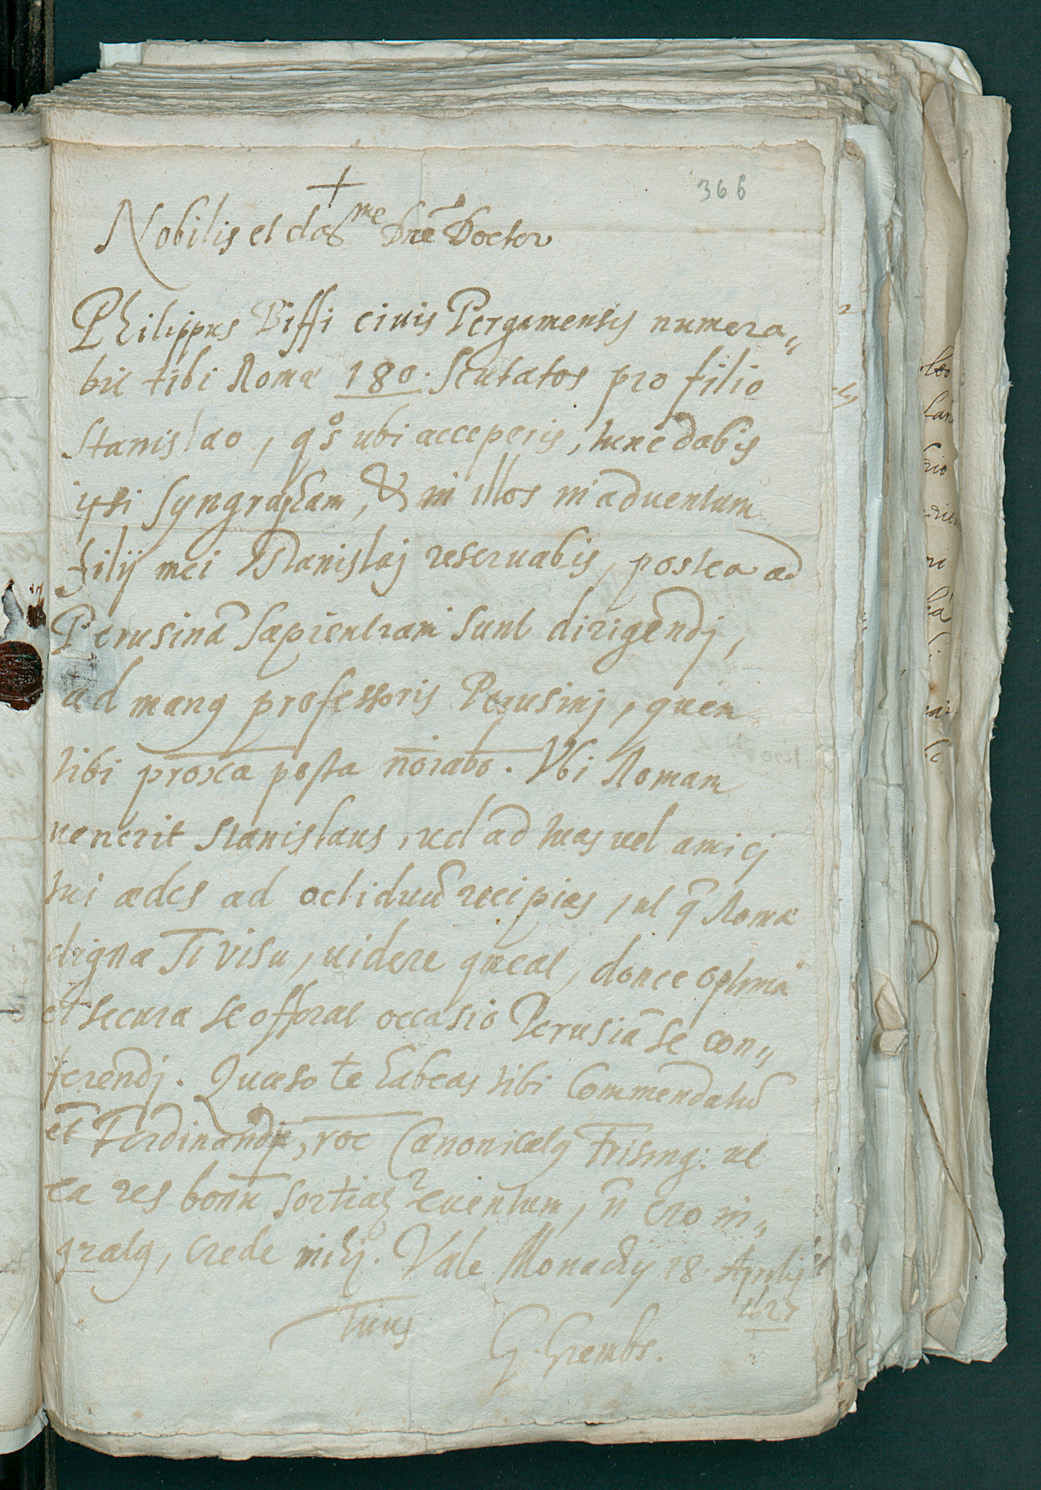 366
+
Nobilis et clariss.me Dn̄e Doctor
Philippus Biffi civis Pergamensis numera„
bit tibi Romæ 180. Scutatos pro filio
Stanislao, qōs ubi acceperis, hunc dabis
ipsi Syngrapham, & in illos in adventum
filij mei Stanislaj reservabis, postea ad
Perusinā Sapientiam sunt dirigendj,
ad manꝰ professoris Perusinj, quem
tibi proxā posta nōiabo. Ubi Romam
venerit Stanislaus, vel ad tuas vel amicj
tui ædes ad octiduū recipias, ut q̄ Romæ
digna st̄ visu, videre queat, donec optima
et secura se offerat occasio Perusiā se con„
ferendj. Quæso te habeas tibi Commendatū
et̄ Ferdinandū, roē Canonicatꝰ Frising: ut
ea res bonū sortiatꝛ eventum, n̄ ero in„
gratꝰ, crede mihj. Vale Monachij 18. Aprilis
1627
Tuus
G. Hrembs.